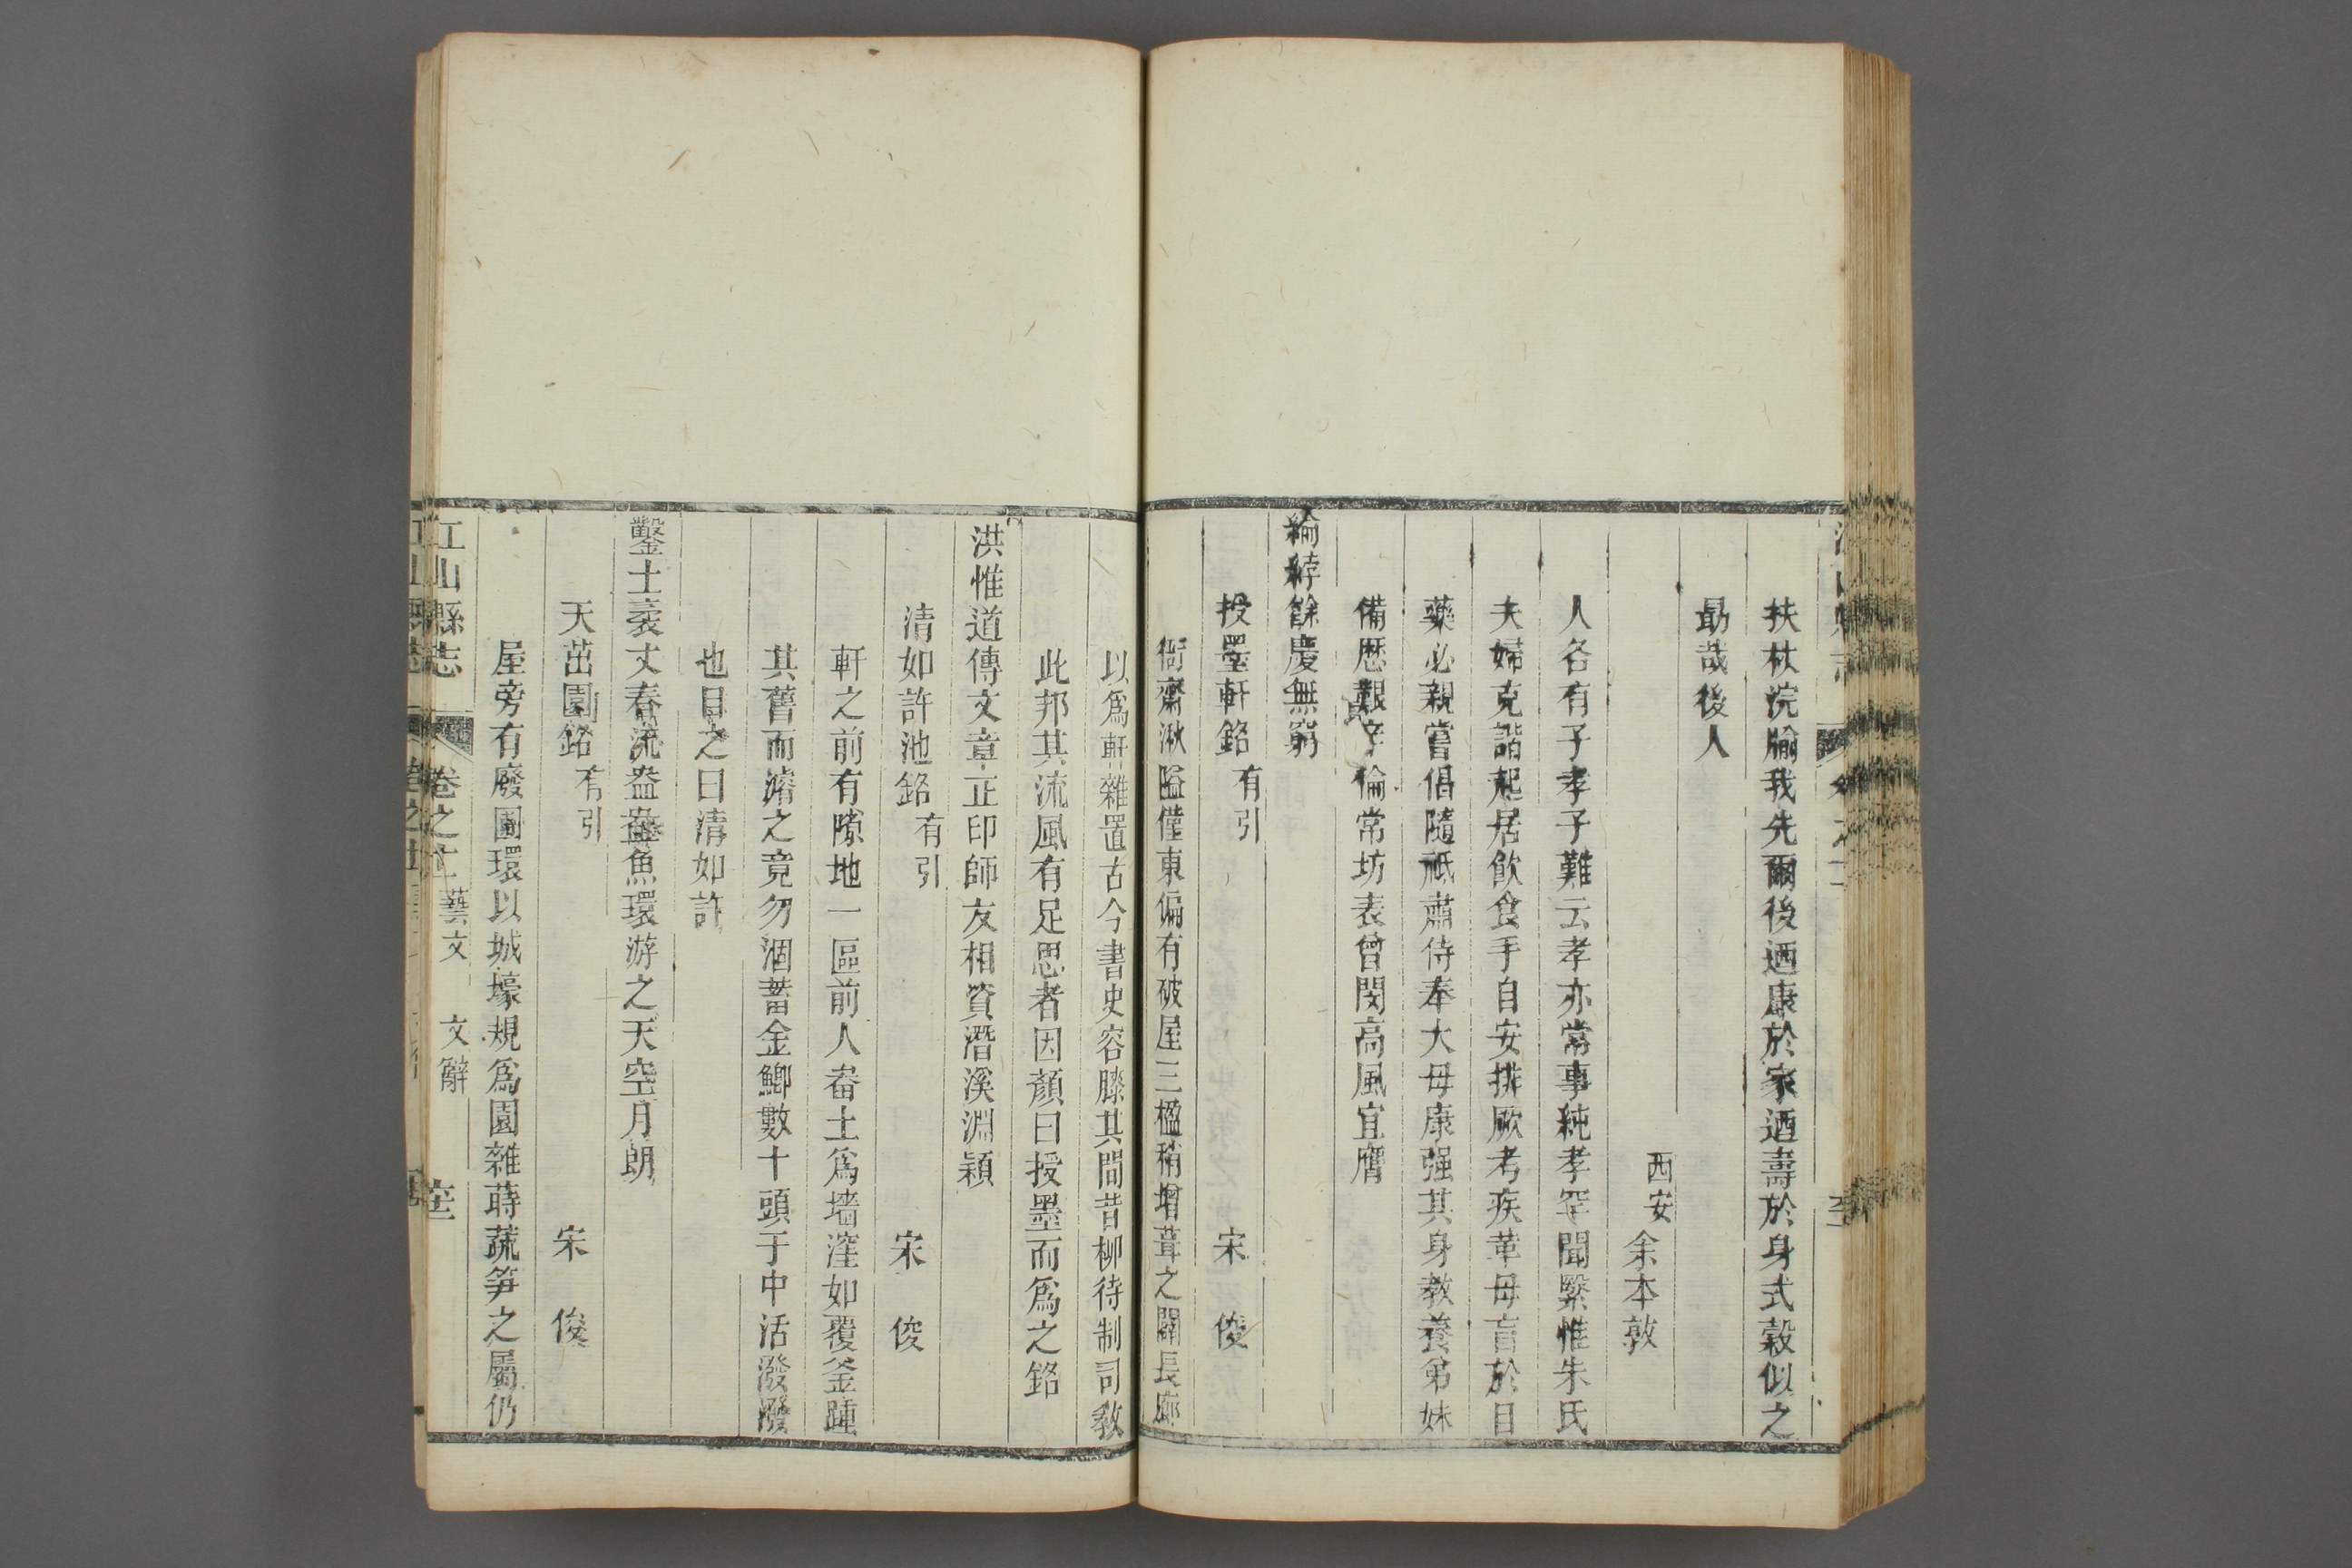 扶杖浣腧我先爾後迺康於家迺壽於身式穀似之
勗哉後人
西安余本敦
人各有子孝子難云孝亦常事純孝罕聞繄惟朱氏
夫婦克諧起居飲食手自安排厥考疾革母盲於目
藥必親嘗倡隨祗肅侍奉大母康强其身教養弟妹
備歷艱辛倫常坊表曾閔高風宜膺
綸綍餘慶無窮
授墨軒銘有引 宋俊
衙齋湫隘僅東偏有破屋三楹稍增葺之闢長廊
以爲軒雜置古今書史容膝其間昔柳待制司教
此邦其流風有足思者因顏曰授墨而爲之銘
洪惟道傳文章正印師友相資潛溪淵穎
清如許池銘有引 宋俊
軒之前有隙地一區前人畚土爲墻窪如覆釜踵
其舊而濬之竟勿涸蓄金鯽數十頭于中活潑潑
也目之曰清如許
鑿土袤丈春流盎盎魚環游之天空月朗
天茁園銘有引 宋俊
屋旁有廢圃環以城壕規爲園雜蒔蔬笋之屬仍
江山縣志 卷之 藝文 文辭